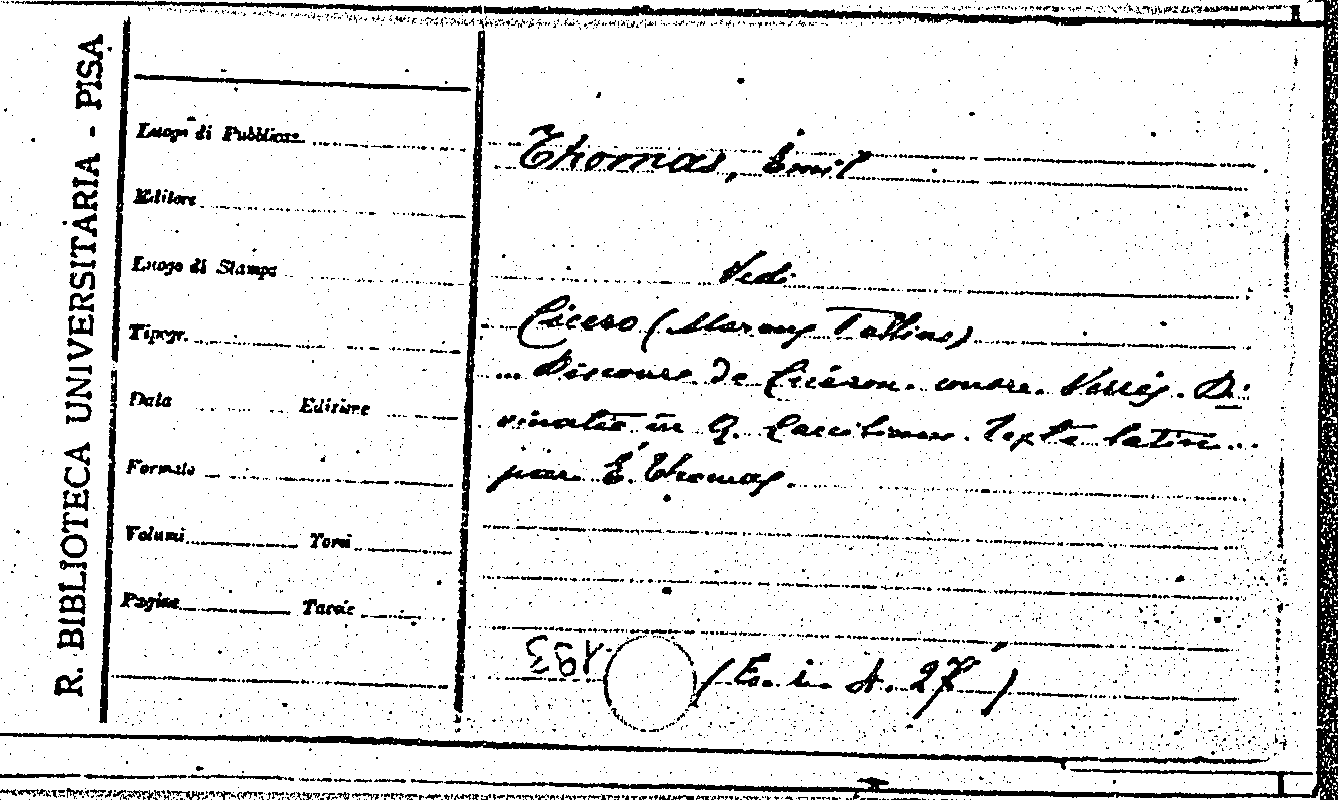 R. BIBLIOTECA UNIVERSITARIA - PISA
Luogo di Pubblicaz.
Editore
Luogo di Stampa
Tipogr.
Data Edizione
Formato
Volumi Tomi
Pagine Tavole
Thomas, Émil
Vedi
Cicero (Marcus Tullius)
... Discours de Cicéron. contre. Verrès. Di-
vinatio in Q. Caecilium. Texte latin...
par É. Thomas.
193
(E. i. A. 27)